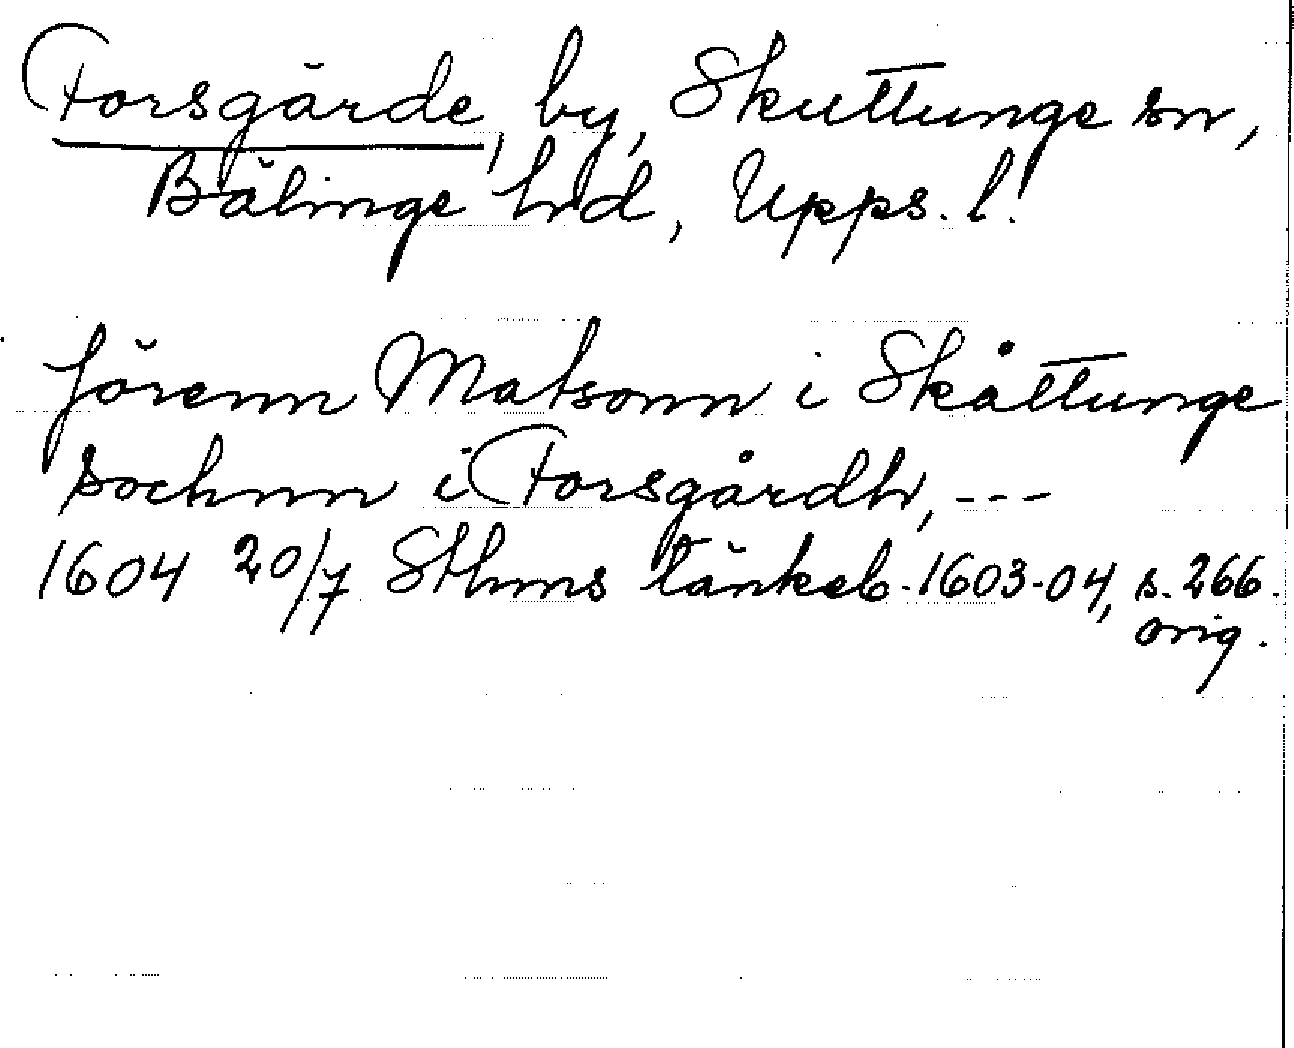 Forsgärde, by, Skuttunge sn,
Bälinge hrd, Upps. l.
Jörenn Matsonn i Skåttunge
sochnn i Forsgårdh, ---
1604 20/7 Sthms tänkeb. 1603-04, s. 266.
orig.